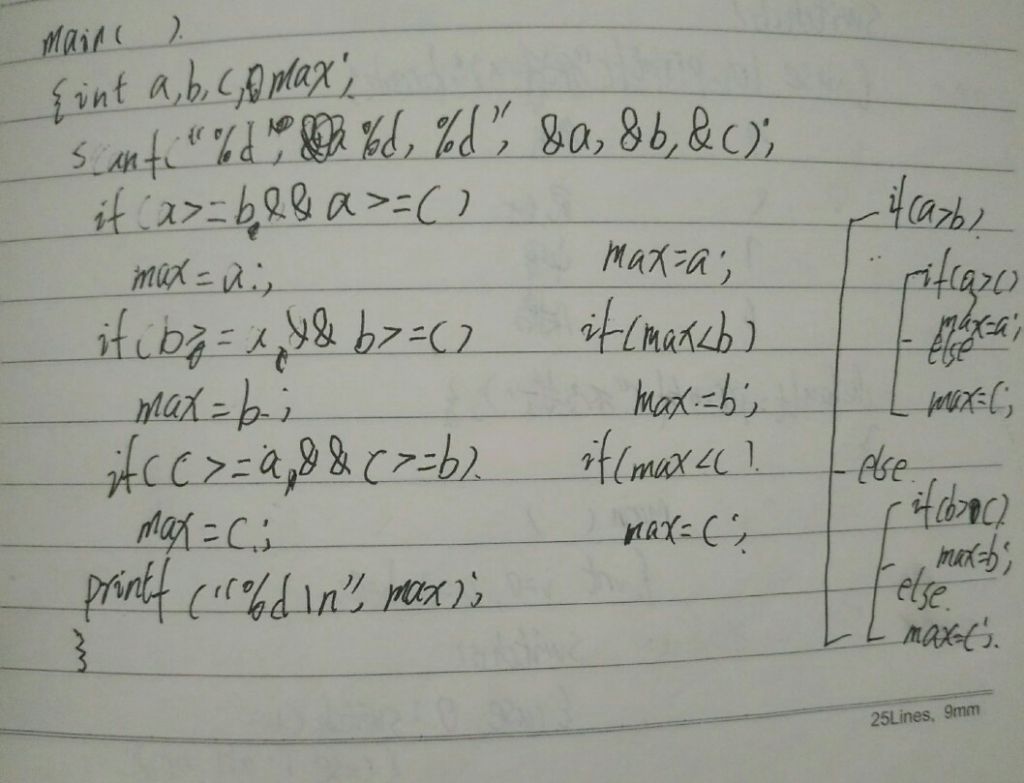 main( )
{int a,b,c,max;
scanf("%d, %d, %d", &a, &b, &c);
if(a>=b && a>=c)
max=a;
if(b>=a && b>=c)
max=b;
if(c>=a && c>=b)
max=c;
printf("%d\n", max);
}
max=a;
if(max<b)
max=b;
if(max<c)
max=c;
if(a>b)
if(a>c)
max=a;
else
max=c;
else
if(b>c)
max=b;
else
max=c;
25Lines, 9mm